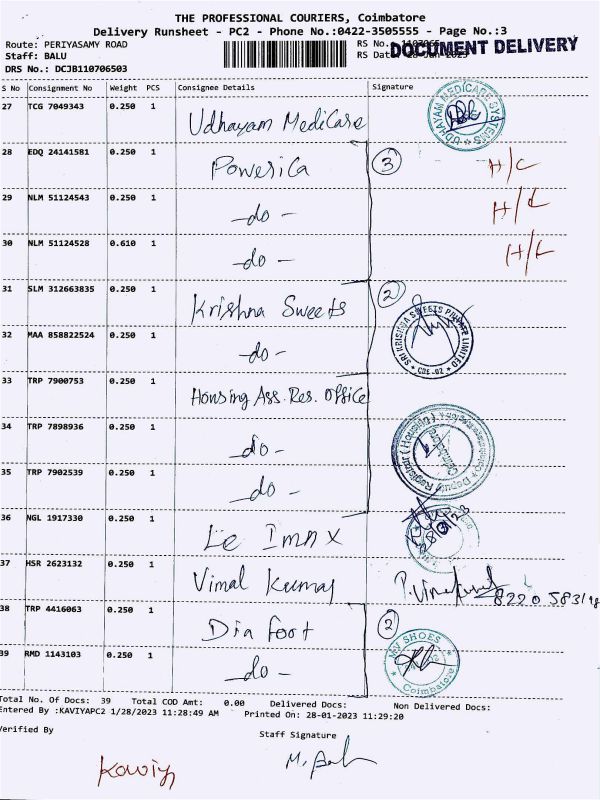 THE PROFESSIONAL COURIERS, Coimbatore
Delivery Runsheet - PC2 - Phone No.:0422-3505555 - Page No.:3
Route: PERIYASAMY ROAD RS No.:
DOCUMENT DELIVERY
Staff: BALU RS Date
DRS No.: DCJB110706503
S No Consignment No Weight PCS Consignee Details Signature
27 TCG 7049343 0.250 1 Udhayam MediCare
UDHAYAM MEDICARE SYSTEMS
28 EDQ 24141581 0.250 1 Powerica 3 H/C
29 NLM 51124543 0.250 1 -do- H/L
30 NLM 51124528 0.610 1 -do- H/L
31 SLM 312663835 0.250 1 Krishna Sweets 2
SRI KRISHNA SWEETS PRIVATE LIMITED
CBE-02
32 MAA 858822524 0.250 1 -do-
33 TRP 7900753 0.250 1 Housing Ass. Res. office
34 TRP 7898936 0.250 1 -do-
Deputy Registrar (Housing)
35 TRP 7902539 0.250 1 -do-
36 NGL 1917330 0.250 1 Le Imax
37 HSR 2623132 0.250 1 Vimal Kumar
38 TRP 4416063 0.250 1 Dia foot 2
39 RMD 1143103 0.250 1 -do-
MV SHOES
Coimbatore
Total No. Of Docs: 39 Total COD Amt: 0.00 Delivered Docs: Non Delivered Docs:
Entered By :KAVIYAPC2 1/28/2023 11:28:49 AM Printed On: 28-01-2023 11:29:20
Verified By Staff Signature
Kaviya